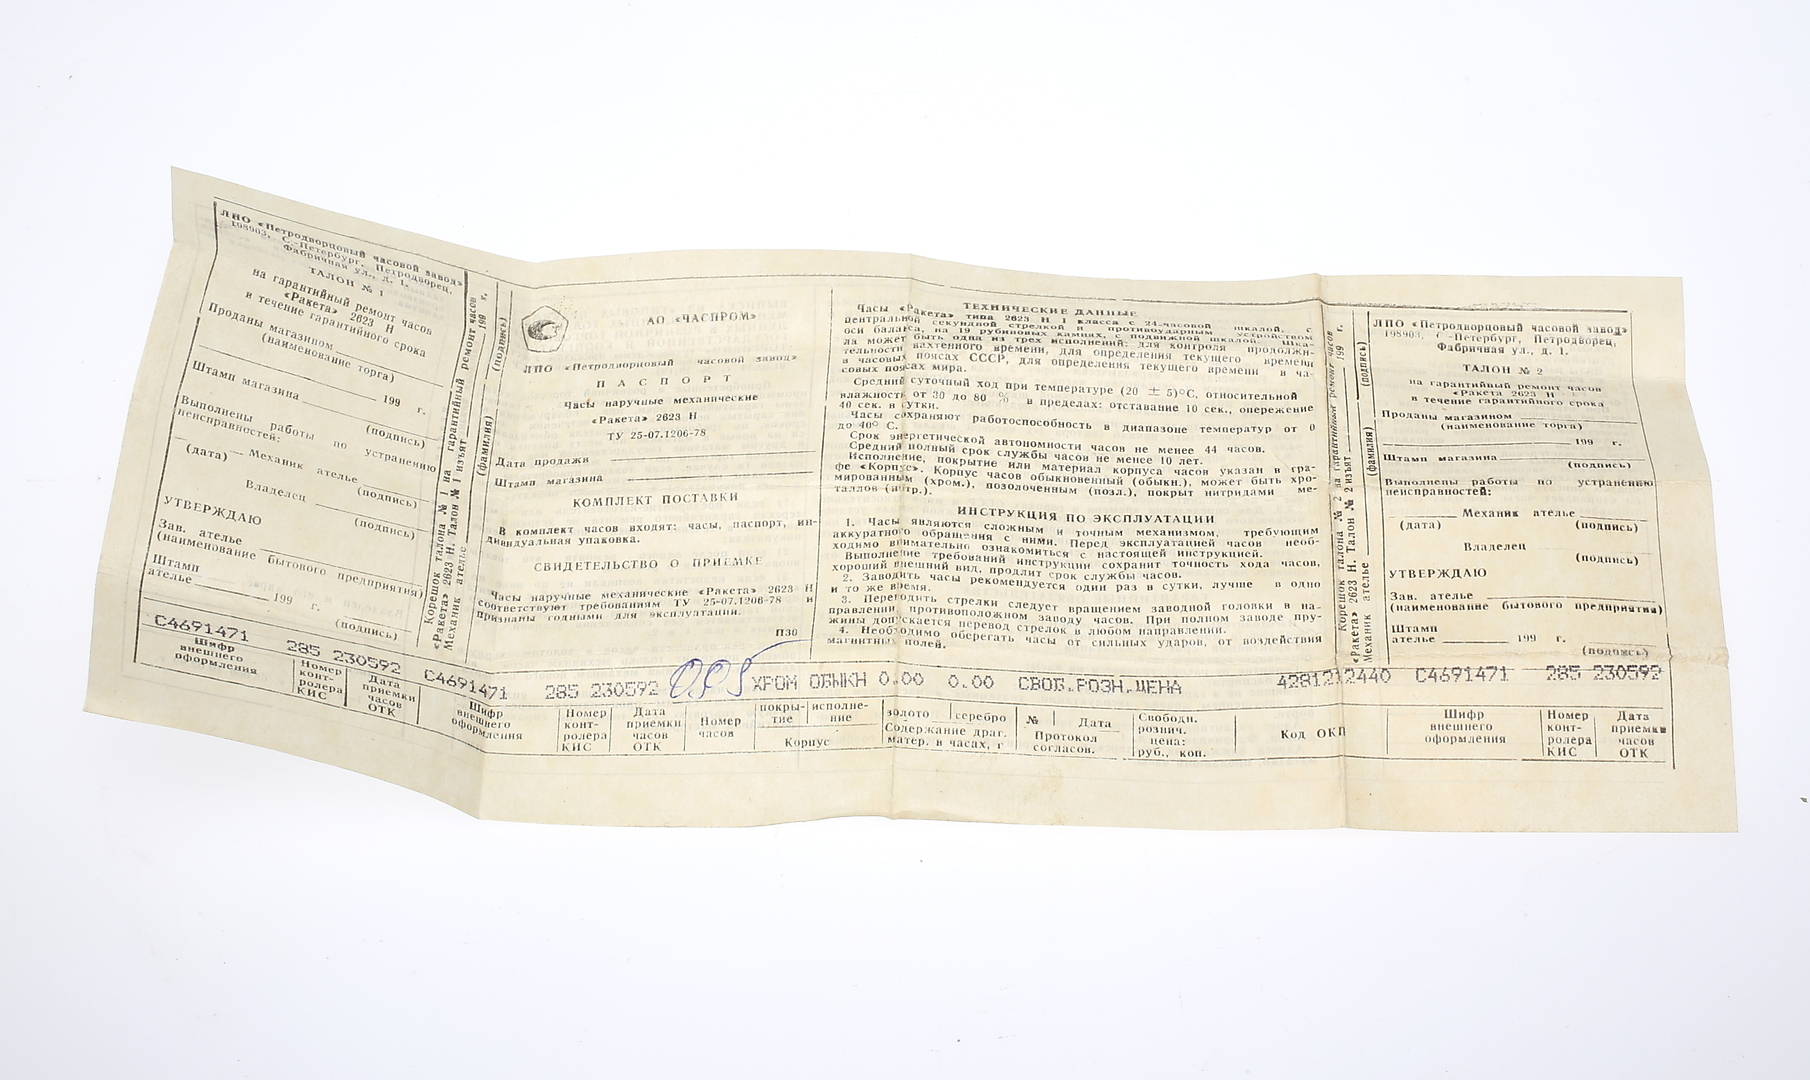 ЛПО «Петродворцовый часовой завод»
198903, С.-Петербург, Петродворец,
Фабричная ул., д. 1.
ТАЛОН № 1
на гарантийный ремонт часов
«Ракета» 2623 Н
в течение гарантийного срока
Проданы магазином
(наименование торга)
199 г.
Штамп магазина
(подпись)
Выполнены работы по устранению
неисправностей:
Механик ателье
(дата) (подпись)
Владелец
(подпись)
УТВЕРЖДАЮ
Зав. ателье
(наименование бытового предприятия)
Штамп
ателье 199 г.
(подпись)
Корешок талона № 1 на гарантийный ремонт часов
«Ракета» 2623 Н. Талон № 1 изъят 199 г.
Механик ателье
(фамилия) (подпись)
АО «ЧАСПРОМ»
ЛПО «Петродворцовый часовой завод»
ПАСПОРТ
Часы наручные механические
«Ракета» 2623 Н
ТУ 25-07.1206-78
Дата продажи
Штамп магазина
КОМПЛЕКТ ПОСТАВКИ
В комплект часов входят: часы, паспорт, ин-
дивидуальная упаковка.
СВИДЕТЕЛЬСТВО О ПРИЕМКЕ
Часы наручные механические «Ракета» 2623 Н
соответствуют требованиям ТУ 25-07.1206-78 и
признаны годными для эксплуатации.
П30
ТЕХНИЧЕСКИЕ ДАННЫЕ
Часы «Ракета» типа 2623 Н 1 класса с 24-часовой шкалой, с
центральной секундной стрелкой и противоударным устройством
оси баланса, на 19 рубиновых камнях, с подвижной шкалой. Шка-
ла может быть одна из трех исполнений: для контроля продолжи-
тельности вахтенного времени, для определения текущего времени
в часовых поясах СССР, для определения текущего времени в ча-
совых поясах мира.
Средний суточный ход при температуре (20 ± 5)°С, относительной
влажности от 30 до 80 % в пределах: отставание 10 сек., опережение
40 сек. в сутки.
Часы сохраняют работоспособность в диапазоне температур от 0
до 40° С.
Срок энергетической автономности часов не менее 44 часов.
Средний полный срок службы часов не менее 10 лет.
Исполнение, покрытие или материал корпуса часов указан в гра-
фе «Корпус». Корпус часов обыкновенный (обыкн.), может быть хро-
мированным (хром.), позолоченным (позл.), покрыт нитридами ме-
таллов (нитр.).
ИНСТРУКЦИЯ ПО ЭКСПЛУАТАЦИИ
1. Часы являются сложным и точным механизмом, требующим
аккуратного обращения с ними. Перед эксплуатацией часов необ-
ходимо внимательно ознакомиться с настоящей инструкцией.
Выполнение требований инструкции сохранит точность хода часов,
хороший внешний вид, продлит срок службы часов.
2. Заводить часы рекомендуется один раз в сутки, лучше в одно
и то же время.
3. Переводить стрелки следует вращением заводной головки в на-
правлении, противоположном заводу часов. При полном заводе пру-
жины допускается перевод стрелок в любом направлении.
4. Необходимо оберегать часы от сильных ударов, от воздействия
магнитных полей.
Корешок талона № 2 на гарантийный ремонт часов
«Ракета» 2623 Н. Талон № 2 изъят 199 г.
Механик ателье
(фамилия) (подпись)
ЛПО «Петродворцовый часовой завод»
198903, С.-Петербург, Петродворец,
Фабричная ул., д. 1.
ТАЛОН № 2
на гарантийный ремонт часов
«Ракета 2623 Н
в течение гарантийного срока
Проданы магазином
(наименование торга)
199 г.
Штамп магазина
(подпись)
Выполнены работы по устранению
неисправностей:
Механик ателье
(дата) (подпись)
Владелец
(подпись)
УТВЕРЖДАЮ
Зав. ателье
(наименование бытового предприятия)
Штамп
ателье 199 г.
(подпись)
С4691471 285 230592 С4691471 285 230592 095 ХРОМ ОБЫКН 0.00 0.00 СВОБ.РОЗН.ЦЕНА 4281212440 С4691471 285 230592
Шифр
внешнего
оформления
Номер
конт-
ролера
КИС
Дата
приемки
часов
ОТК
Шифр
внешнего
оформления
Номер
конт-
ролера
КИС
Дата
приемки
часов
ОТК
Номер
часов
покры-
тие
исполне-
ние
Корпус
золото серебро
Содержание драг.
матер. в часах, г
№ Дата
Протокол
согласов.
Свободн.
рознич.
цена:
руб., коп.
Код ОКП
Шифр
внешнего
оформления
Номер
конт-
ролера
КИС
Дата
приемки
часов
ОТК